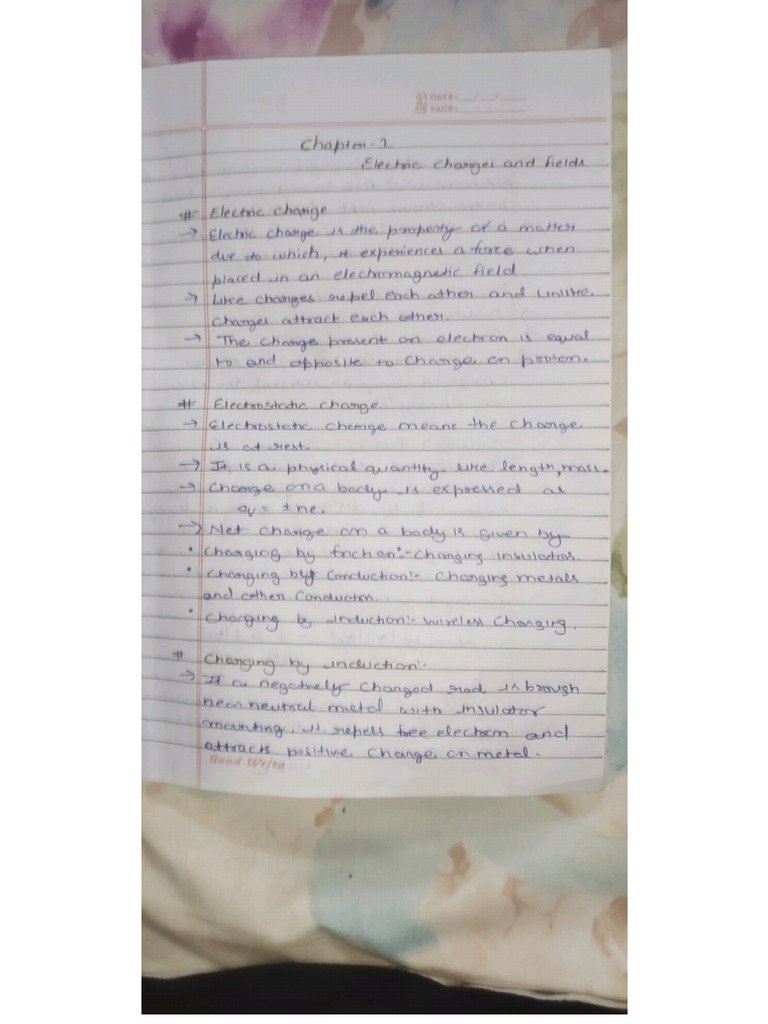 DATE: __/__/____
PAGE:
Chapter-1
Electric Charges and fields
# Electric charge
→ Electric charge is the property of a matter
due to which, it experiences a force when
placed in an electromagnetic field.
→ Like charges repel each other and unlike
Charges attract each other.
→ The charge present on electron is equal
to and opposite to charge on proton.
# Electrostatic charge
→ Electrostatic charge means the charge
is at rest.
→ It is a physical quantity like length, mass.
→ Charge on a body is expressed as
q = ± ne.
→ Net charge on a body is given by
• Charging by friction:- Charging insulators.
• Charging by conduction:- Charging metals
and other Conductors.
• Charging by induction:- wireless Charging.
# Charging by induction:-
→ If a negatively charged rod is brough
near neutral metal with insulator
mounting, it repels free electron and
attracts positive charge on metal.
Good Write